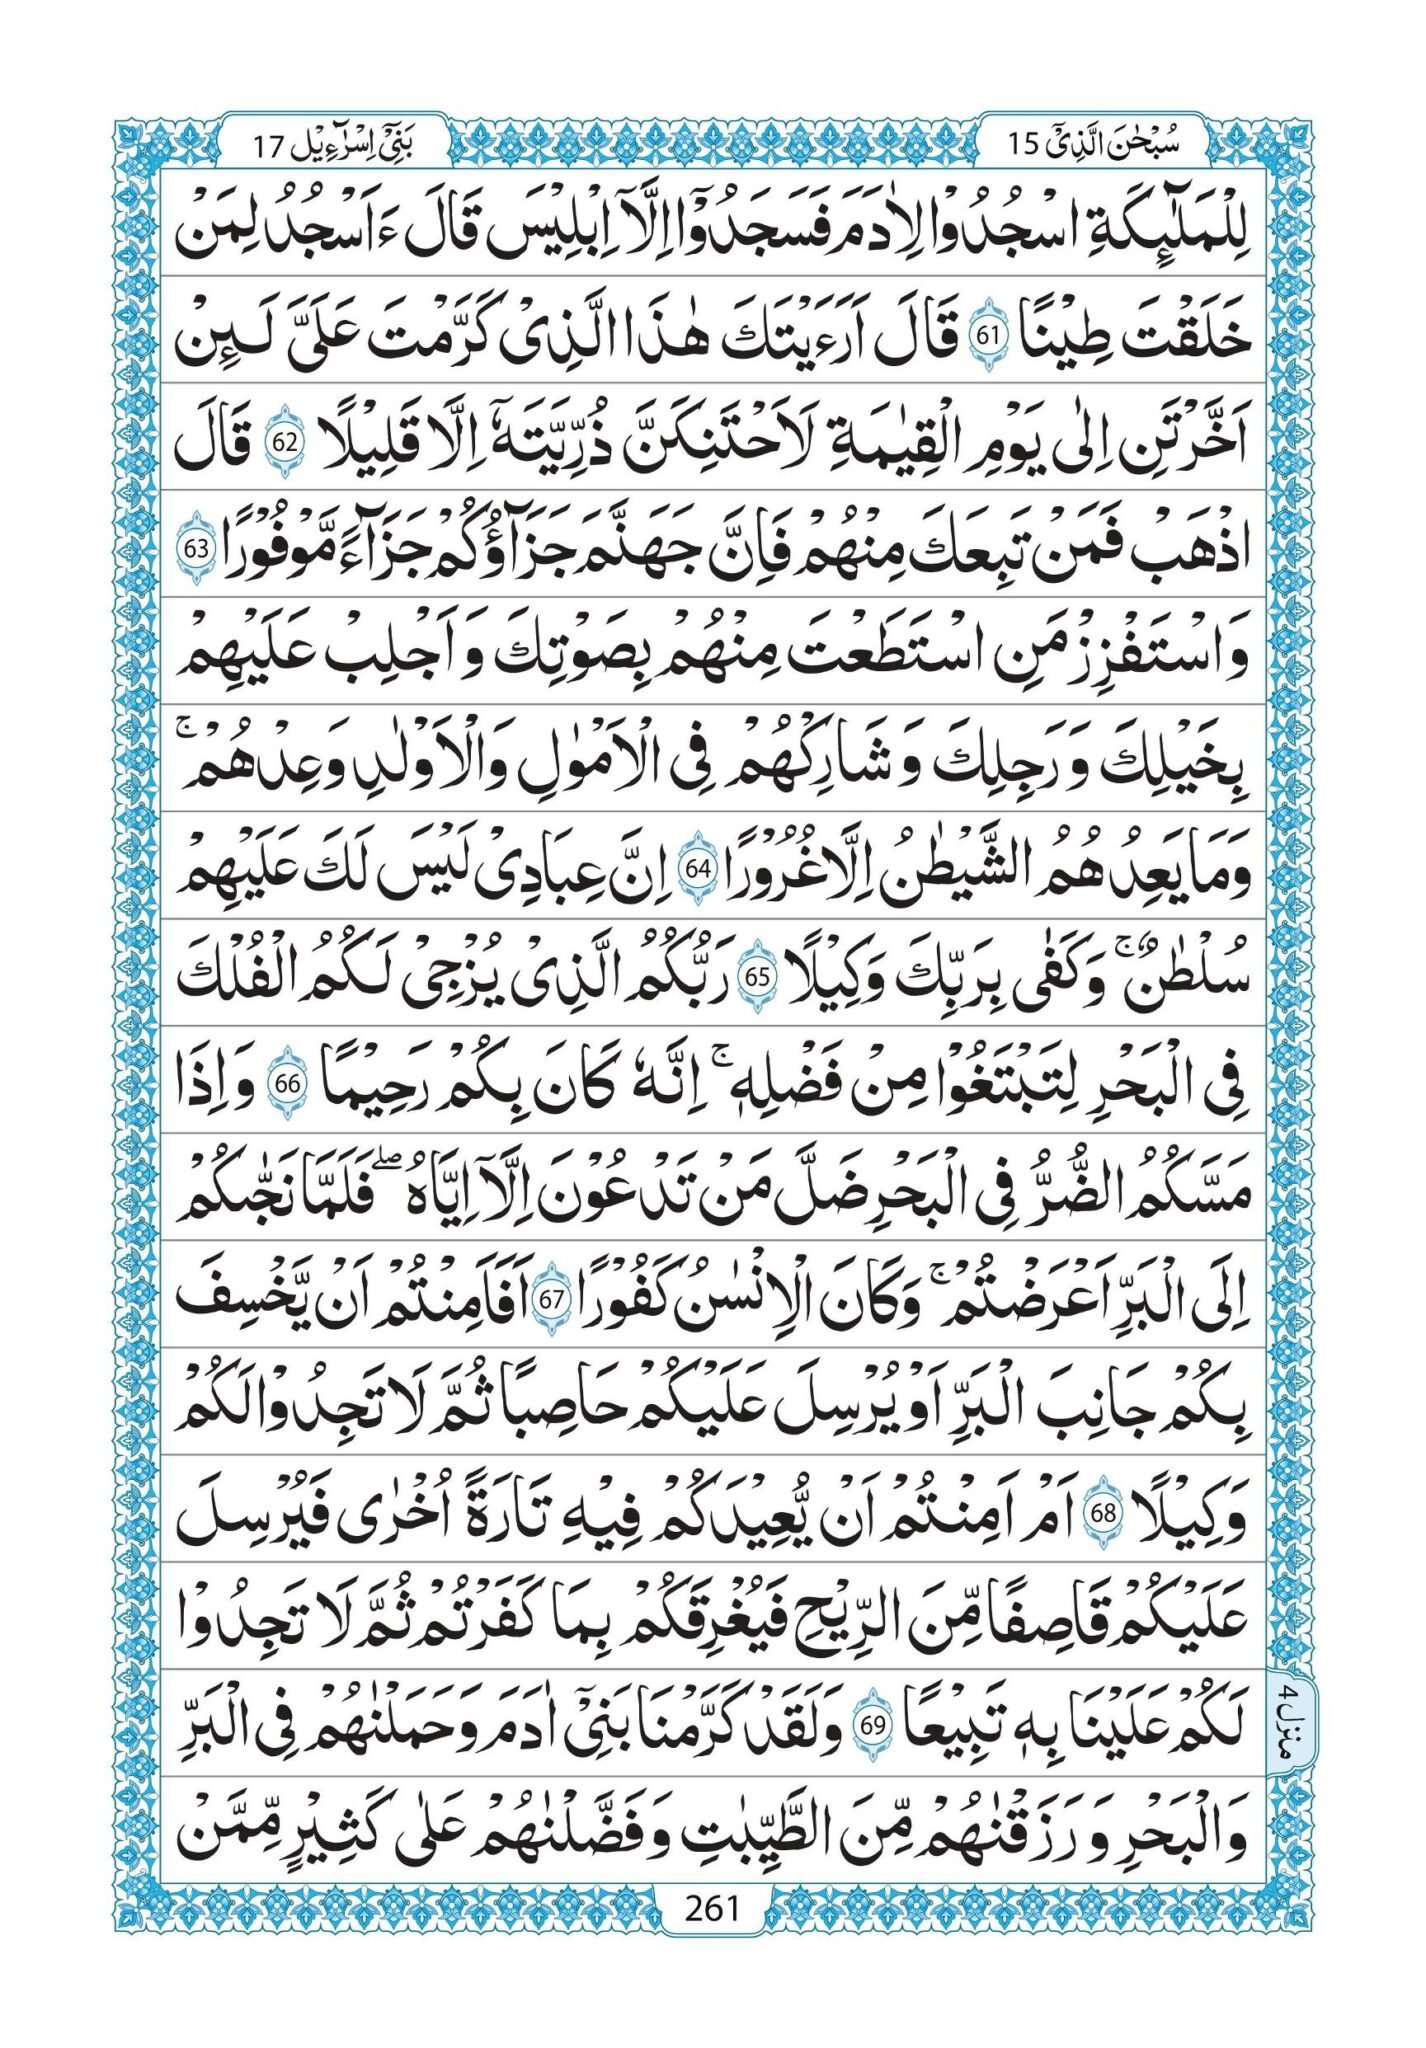 بَنِیْۤ اِسْرَآءِیْل 17
سُبْحٰنَ الَّذِیْۤ 15
لِلْمَلٰٓىِٕكَةِ اسْجُدُوْا لِاٰدَمَ فَسَجَدُوْۤا اِلَّاۤ اِبْلِیْسَ قَالَ ءَاَسْجُدُ لِمَنْ
خَلَقْتَ طِیْنًا 61 قَالَ اَرَءَیْتَكَ هٰذَا الَّذِیْ كَرَّمْتَ عَلَیَّ لَىِٕنْ
اَخَّرْتَنِ اِلٰى یَوْمِ الْقِیٰمَةِ لَاَحْتَنِكَنَّ ذُرِّیَّتَهٗۤ اِلَّا قَلِیْلًا 62 قَالَ
اذْهَبْ فَمَنْ تَبِعَكَ مِنْهُمْ فَاِنَّ جَهَنَّمَ جَزَآؤُكُمْ جَزَآءً مَّوْفُوْرًا 63
وَاسْتَفْزِزْ مَنِ اسْتَطَعْتَ مِنْهُمْ بِصَوْتِكَ وَاَجْلِبْ عَلَیْهِمْ
بِخَیْلِكَ وَرَجِلِكَ وَشَارِكْهُمْ فِی الْاَمْوٰلِ وَالْاَوْلٰدِ وَعِدْهُمْ ۚ
وَمَا یَعِدُهُمُ الشَّیْطٰنُ اِلَّا غُرُوْرًا 64 اِنَّ عِبَادِیْ لَیْسَ لَكَ عَلَیْهِمْ
سُلْطٰنٌ ۚ وَكَفٰى بِرَبِّكَ وَكِیْلًا 65 رَبُّكُمُ الَّذِیْ یُزْجِیْ لَكُمُ الْفُلْكَ
فِی الْبَحْرِ لِتَبْتَغُوْا مِنْ فَضْلِهٖ ۚ اِنَّهٗ كَانَ بِكُمْ رَحِیْمًا 66 وَاِذَا
مَسَّكُمُ الضُّرُّ فِی الْبَحْرِ ضَلَّ مَنْ تَدْعُوْنَ اِلَّاۤ اِیَّاهُ ۖ فَلَمَّا نَجّٰىكُمْ
اِلَى الْبَرِّ اَعْرَضْتُمْ ۚ وَكَانَ الْاِنْسٰنُ كَفُوْرًا 67 اَفَاَمِنْتُمْ اَنْ یَّخْسِفَ
بِكُمْ جَانِبَ الْبَرِّ اَوْ یُرْسِلَ عَلَیْكُمْ حَاصِبًا ثُمَّ لَا تَجِدُوْا لَكُمْ
وَكِیْلًا 68 اَمْ اَمِنْتُمْ اَنْ یُّعِیْدَكُمْ فِیْهِ تَارَةً اُخْرٰى فَیُرْسِلَ
عَلَیْكُمْ قَاصِفًا مِّنَ الرِّیْحِ فَیُغْرِقَكُمْ بِمَا كَفَرْتُمْ ثُمَّ لَا تَجِدُوْا
لَكُمْ عَلَیْنَا بِهٖ تَبِیْعًا 69 وَلَقَدْ كَرَّمْنَا بَنِیْۤ اٰدَمَ وَحَمَلْنٰهُمْ فِی الْبَرِّ
وَالْبَحْرِ وَرَزَقْنٰهُمْ مِّنَ الطَّیِّبٰتِ وَفَضَّلْنٰهُمْ عَلٰى كَثِیْرٍ مِّمَّنْ
منزل 4
261